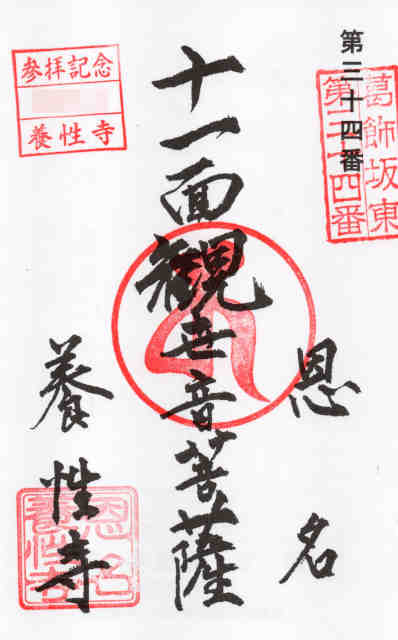 第三十四番
葛飾坂東
第三十四番
恩名
十一面観世音菩薩
参拝記念
養性寺
養性寺
恩名
養性寺